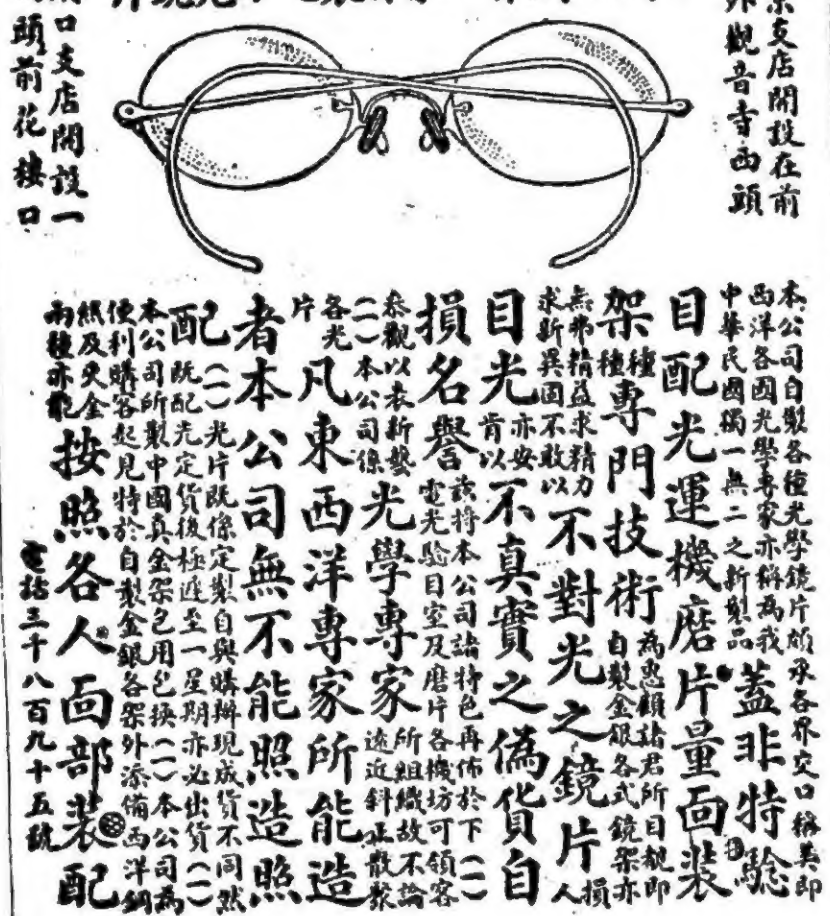 京支店開設在前
外觀音寺西頭
口支店開設一
頭前花樓口
本公司自製各種光學鏡片頗承各界交口稱羡即
西洋各國光學專家亦稱為我
中華民國獨一無二之新製品
蓋非特驗
目配光運機磨片量面裝
架種種專門技術為惠顧諸君所目覩即
自製金銀各式鏡架亦
無弗精益求精力
求新異固不敢以不對光之鏡片損人
目光亦安肯以不真實之偽貨自
損名譽茲將本公司諸特色再佈於下(一)
電光驗目室及磨片各機坊可領客
參觀以表新藝
(一)本公司係光學專家所組織故不論
遠近斜正散聚
各光片凡東西洋專家所能造
者本公司無不能照造照
配(一)光片既係定製自與購辦現成貨不同然
既配光定貨後極遲至一星期亦必出貨(一)
本公司所製中國真金架包用包換(一)本公司為
便利購客起見特於自製金銀各架外添備西洋鋼
紙及夾金
兩種亦能按照各人面部裝配
電話三千八百九十五號